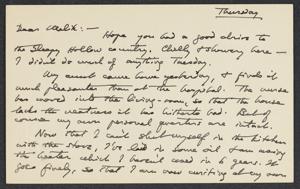 Thursday
Dear Malik:— Hope you had a good drive to
the Sleepy Hollow country. Chilly & showery here —
I didn't do much of anything Tuesday.
My aunt came home yesterday, & finds it
much pleasanter than at the hospital. The nurse
has moved into the living-room, so that the house
lacks the neatness it has hitherto had. But of
course my own personal quarters are intact.
Now that I can't shut myself in the kitchen
with the stove, I've laid in some oil & am using
the heater which I haven't used in 6 years. It
goes finely, so that I am now writing at my own